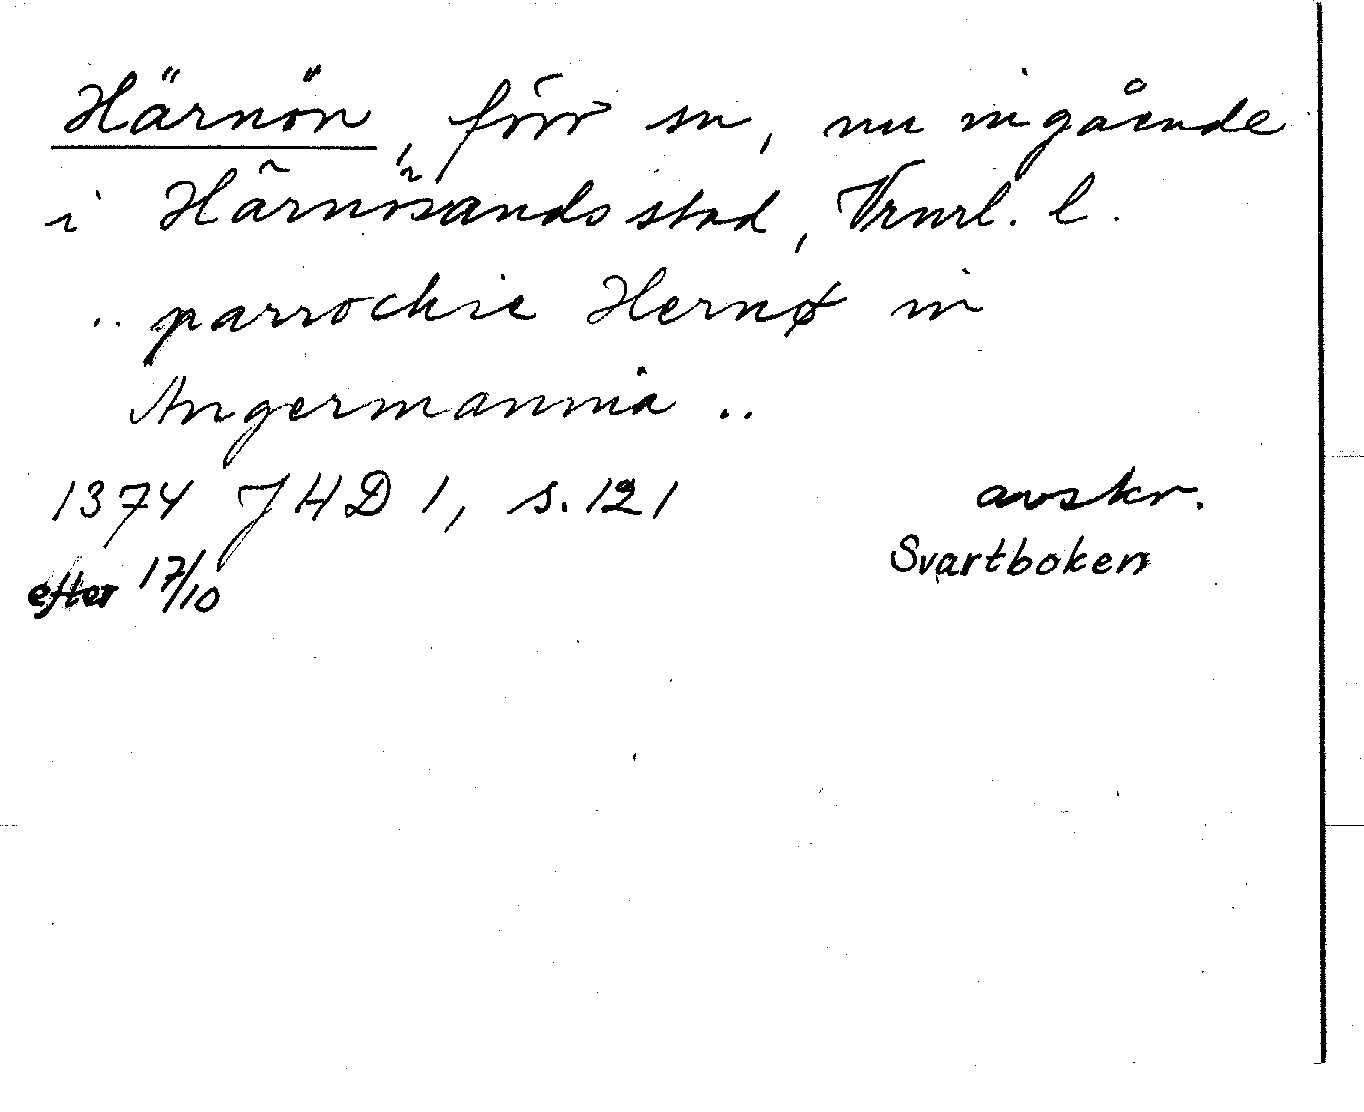 Härnön, förr sn, nu ingående
i Härnösands stad, Vrnrl. l.
.. parrochie Hernø in
Angermannia ..
1374 JHD 1, s. 121 avskr.
efter 17/10 Svartboken